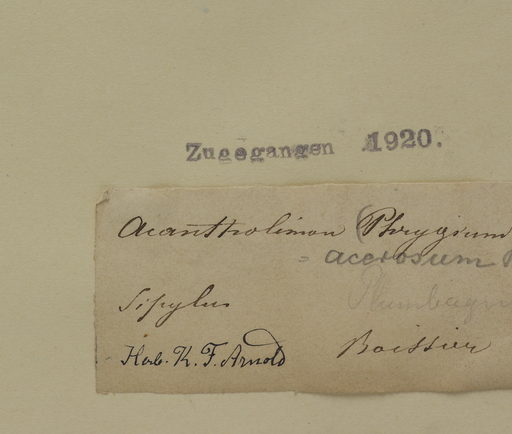 Zugegangen 1920.
Acantholimon (Phrygium
= acerosum
Sipylus
Plumbagin
Herb. K. F. Arnold Boissier